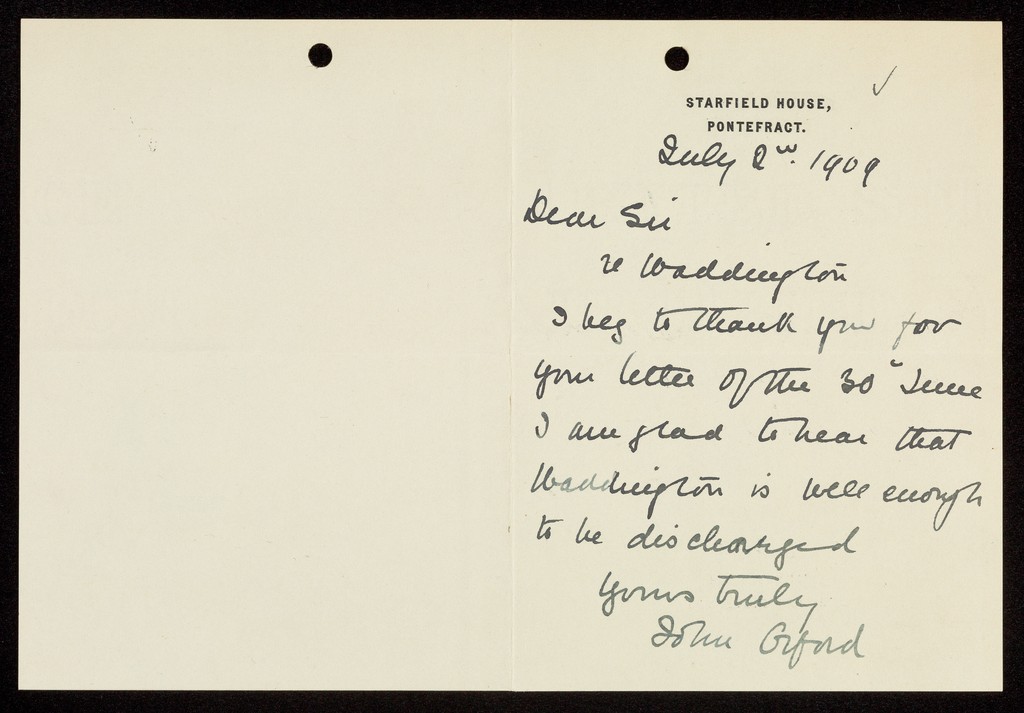 STARFIELD HOUSE,
PONTEFRACT.
July 2nd. 1909
Dear Sir
re Waddington
I beg to thank you for
your letter of the 30th June
I am glad to hear that
Waddington is well enough
to be discharged
Yours truly
John Oxford